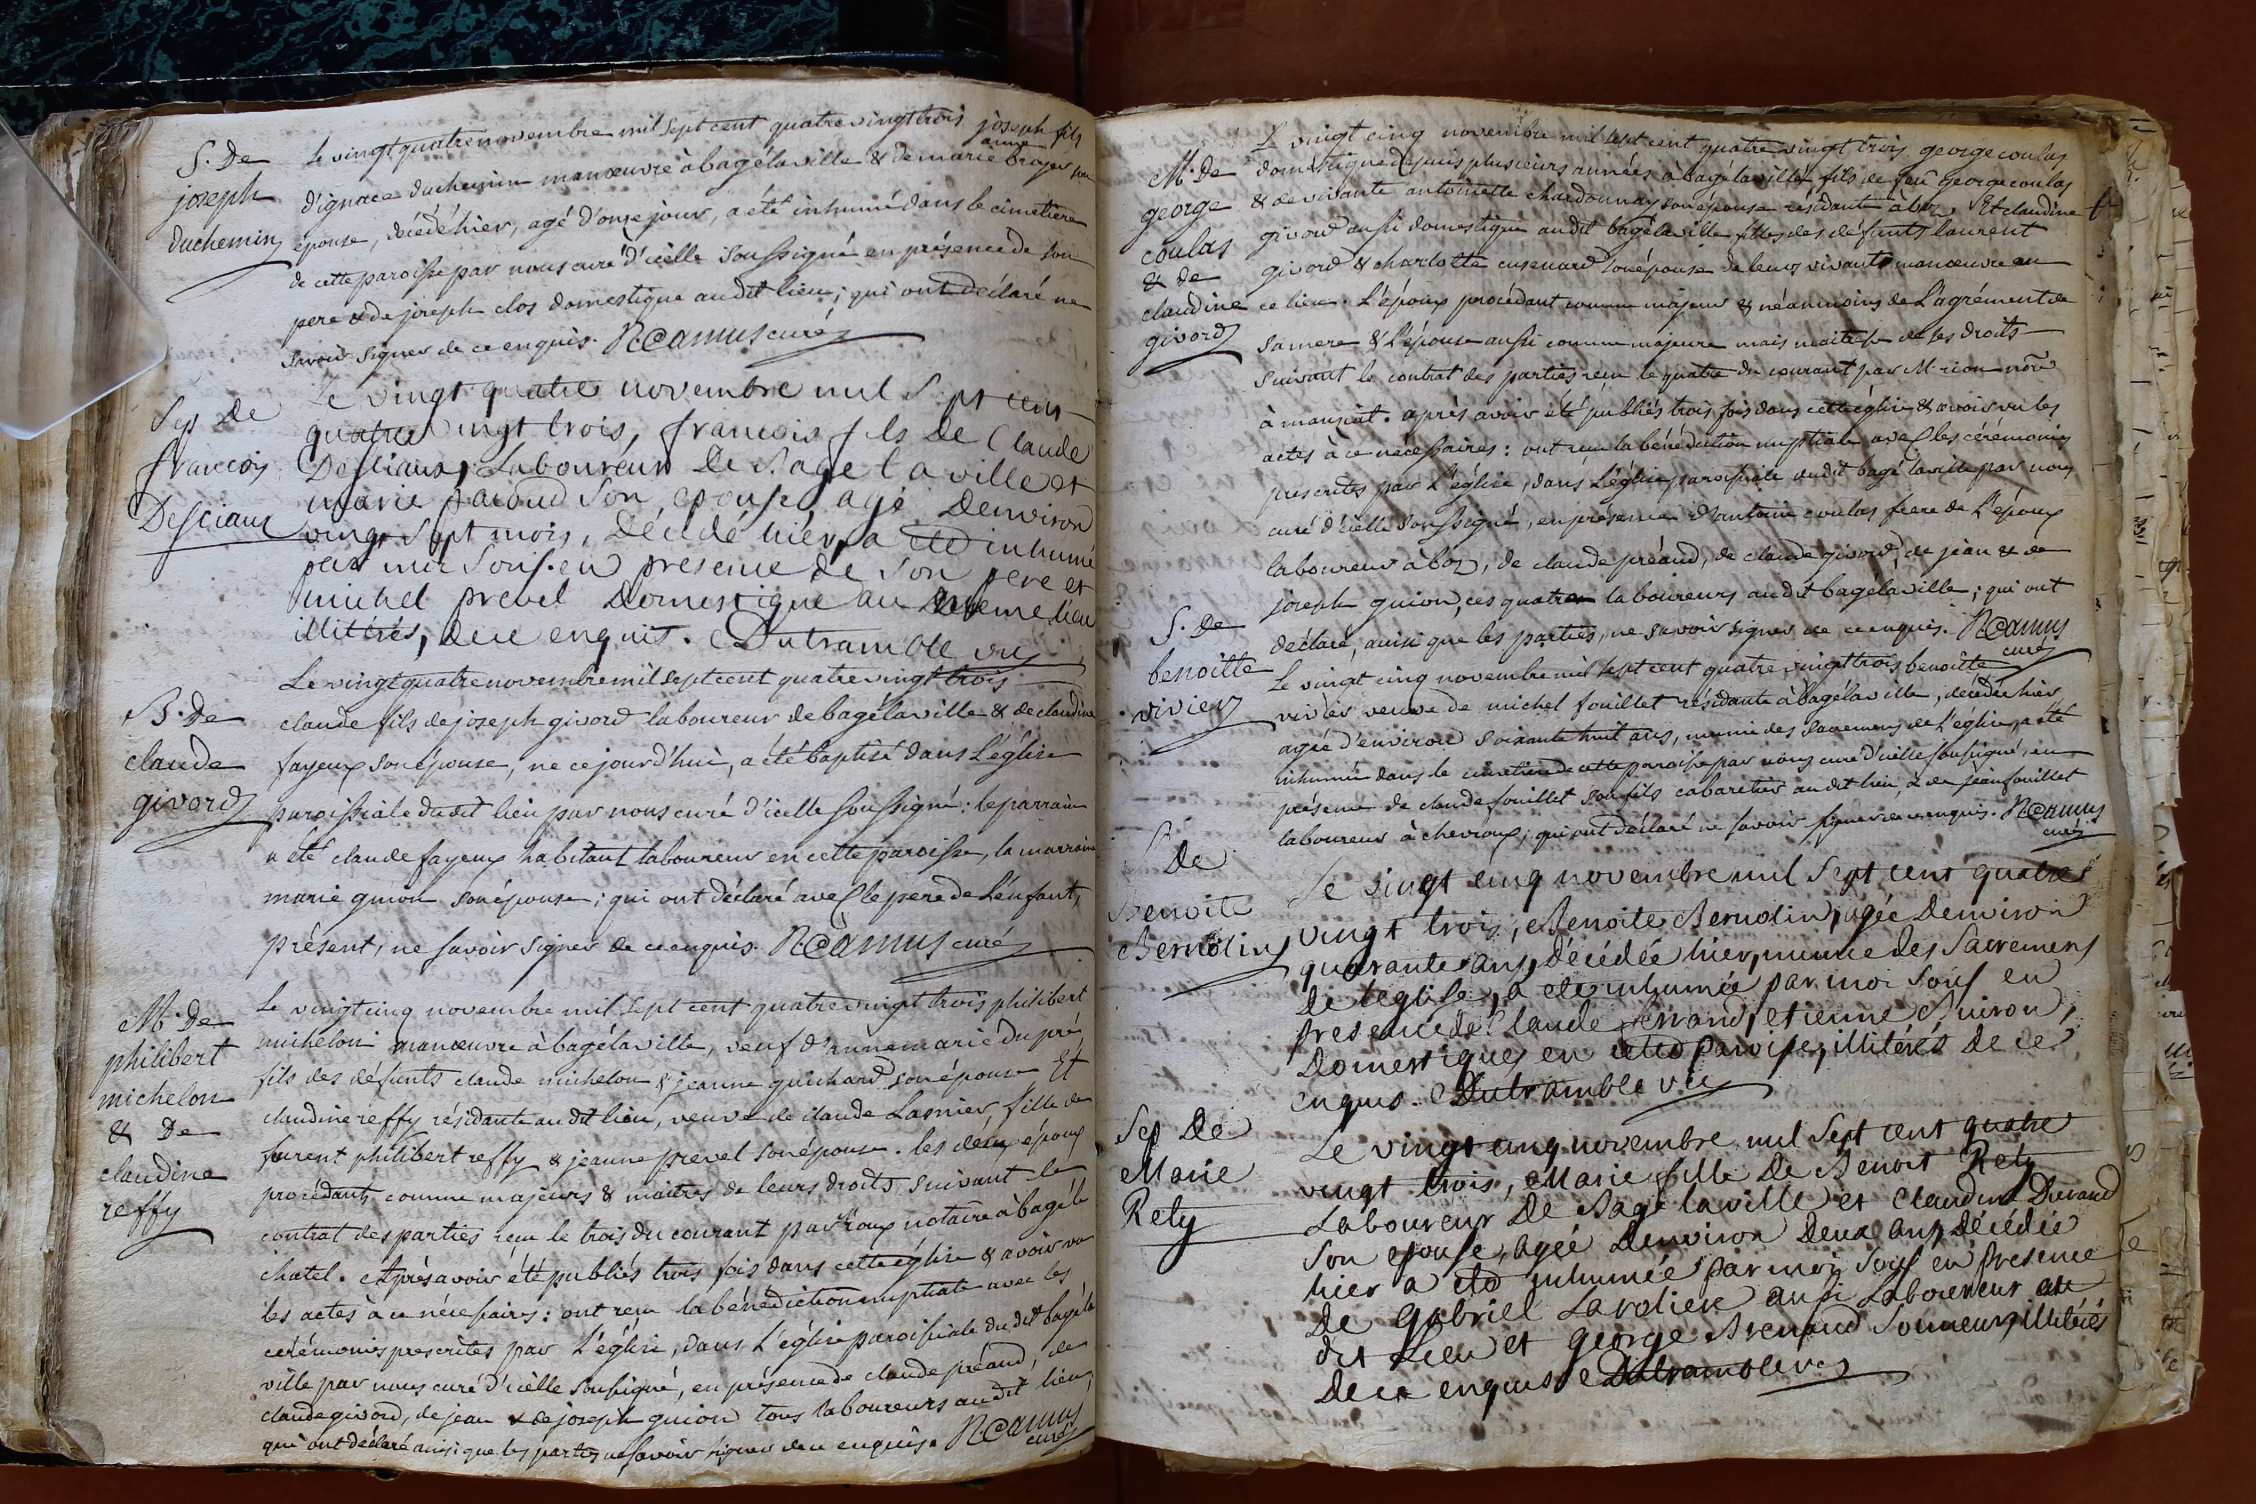 S. De
joseph
duchemin
Le vingt quatre novembre mil sept cent quatre vingt trois joseph fils
d'ignace duchemin manœuvre à bagélaville & de marie anne broyer son
épouse, décédé hier, agé d'onze jours, a été inhumé dans le cimetiere
de cette paroisse par nous curé d'icelle soussigné en présence de son
pere & de joseph clos domestique audit lieu; qui ont déclaré ne
savoir signer de ce enquis. N. Camus curé
Sep De
francois
Desciaux
Le vingt quatre novembre mil Sept cent
quatre vingt trois, francois fils De Claude
Desciaux, Laboureur De Bagé la ville et
marie son epouse, agé Denviron
vingt Sept mois, Décédé hier, a été inhumé
par moi Sous. en presence de Son pere et
michel prevel Domestique au meme lieu
illitérés, de ce enquis. Dutramble vic
B. De
claude
givord
Le vingt quatre novembre mil sept cent quatre vingt trois
claude fils de joseph givord laboureur de bagélaville & de claudine
fayeux son épouse, ne ce jourd'hui, a été baptisé dans L'église
paroissiale dudit lieu par nous curé d'icelle soussigné: le parrain
a été claude fayeux habitant laboureur en cette paroisse, la marraine
marie guion son épouse; qui ont déclaré avec le pere de L'enfant,
présent, ne savoir signer de ce enquis. N. Camus curé
M. De
philibert
michelon
& De
claudine
reffy
Le vingt cinq novembre mil sept cent quatre vingt trois philibert
michelon manœuvre à bagélaville, veuf d'anne marie dupré
fils des défunts claude michelon & jeanne guichard son épouse Et
claudine reffy résidante audit lieu, veuve de claude Lasnier, fille de
furent philibert reffy & jeanne prevel son épouse. les deux époux
procédants comme majeurs & maitres de leurs droits suivant le
contrat des parties reçu le trois du courant par roux notaire à bagé le
chatel. Après avoir été publiés trois fois dans cette église & avoir vu
les actes à ce nécessaires: ont reçu la bénédiction nuptiale avec les
cérémonies prescrites par L'église, dans L'église paroissiale dudit bagéla
ville par nous curé d'icelle soussigné, en présence de claude préaud, de
claude givord, de jean & de joseph guion tous laboureurs audit lieu,
qui ont déclaré ainsi que les parties ne savoir signer de ce enquis. N. Camus
curé
M. De
george
coulas
& de
claudine
givord
Le vingt cinq novembre mil sept cent quatre vingt trois george coulas
domestique depuis plusieurs années à bagélaville fils de feu george coulas
& de vivante antoinette chardonnay son épouse résidante à boz, Et claudine
givord aussi domestique audit bagélaville fille des défunts laurent
givord & charlotte son épouse de leurs vivants manœuvre en
ce lieu. L'époux procédant comme majeur & néanmoins de L'agrément de
sa mere & L'épouse aussi comme majeure mais maitresse de ses droits
suivant le contrat des parties reçu le quatre du courant par M. nore
à manziat. après avoir été publiés trois fois dans cette église & avoir vu les
actes à ce nécessaires: ont reçu la bénédiction nuptiale avec les cérémonies
prescrites par L'église, dans L'église paroissiale dudit bagé laville par nous
curé d'icelle soussigné, en présence d'antoine coulas frere de L'époux
laboureur à boz, de claude préaud, de claude givord, de jean & de
joseph guion, ces quatre laboureurs audit bagélaville; qui ont
déclaré, ainsi que les parties, ne savoir signer de ce enquis. N. Camus
curé
S. De
benoitte
vivier
Le vingt cinq novembre mil sept cent quatre vingt trois benoitte
vivier veuve de michel fouillet résidante à bagélaville, décédée hier,
agée d'environ soixante huit ans, munie des sacremens de L'église, a été
inhumée dans le cimetiere de cette paroisse par nous curé d'icelle soussigné, en
présence de claude fouillet son fils cabaretier audit lieu, & de jean fouillet
laboureur à chevroux; qui ont déclaré ne savoir signer de ce enquis. N. Camus
curé
De
Benoite
Bernolin
Le vingt cinq novembre mil Sept cent quatre
vingt trois, Benoite Bernolin, agée Denviron
quarante ans, Décédée hier, munie des Sacremens
De l'eglise, a été inhumée par moi Sous en
presence de Claude ferrand, etienne Buiron,
Domestiques en cette paroisse, illitérés De ce
enquis. Dutramble vic
Sep De
Marie
Rety
Le vingt cinq novembre mil Sept cent quatre
vingt trois, Marie fille De Benoit Rety
Laboureur De Bagé laville et Claudine Durand
Son epouse, agée Denviron Deux ans, Décédée
hier a été inhumée par moi Sous en presence
De Gabriel Laroliere aussi Laboureur au
dit Lieu et george Brenaud Sonneur, illitérés
De ce enquis Dutramble vic